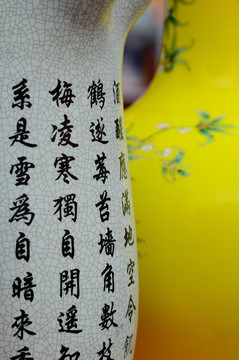 應滿地空令
鶴遂莓苔墙角數枝
梅凌寒獨自開遥知
系是雪爲自暗來